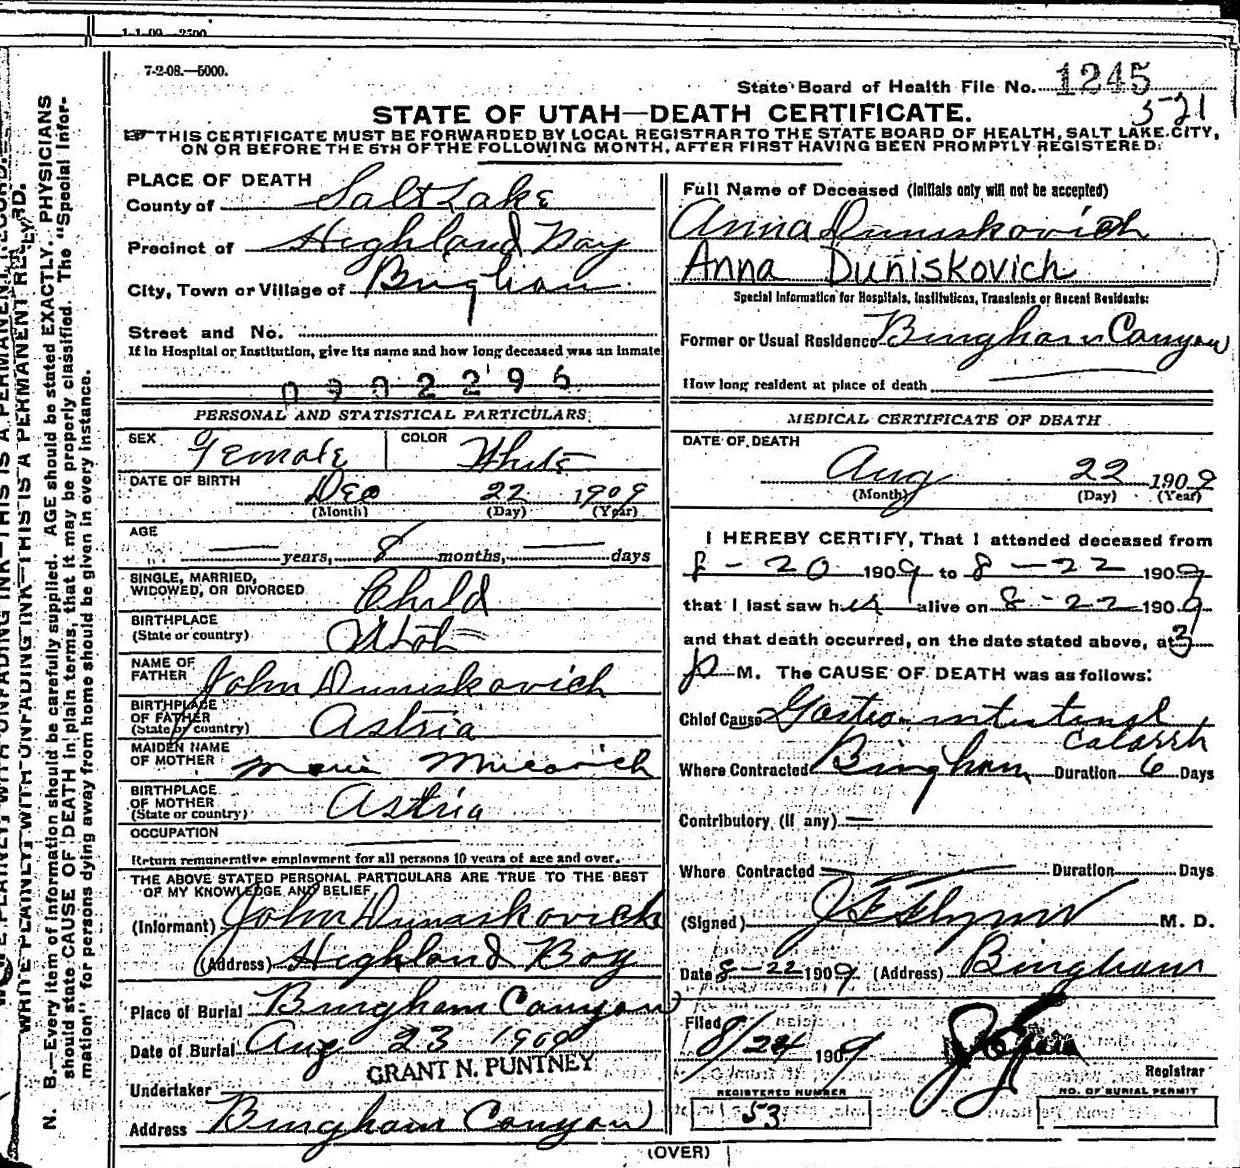 1-1-09—2500
7-2-08.—5000.
State Board of Health File No. 1245
521
STATE OF UTAH—DEATH CERTIFICATE.
THIS CERTIFICATE MUST BE FORWARDED BY LOCAL REGISTRAR TO THE STATE BOARD OF HEALTH, SALT LAKE CITY,
ON OR BEFORE THE 5TH OF THE FOLLOWING MONTH, AFTER FIRST HAVING BEEN PROMPTLY REGISTERED.
PLACE OF DEATH
County of Salt Lake
Precinct of Highland Boy
City, Town or Village of Bingham
Street and No.
If in Hospital or Institution, give its name and how long deceased was an inmate
0902296
PERSONAL AND STATISTICAL PARTICULARS
SEX Female COLOR White
DATE OF BIRTH Dec 22 1909
(Month) (Day) (Year)
AGE
— years, 8 months, — days
SINGLE, MARRIED,
WIDOWED, OR DIVORCED Child
BIRTHPLACE
(State or country) Utah
NAME OF
FATHER John Duniskovich
BIRTHPLACE
OF FATHER
(State or country) Astria
MAIDEN NAME
OF MOTHER Marie
BIRTHPLACE
OF MOTHER
(State or country) Astria
OCCUPATION
Return remunerative employment for all persons 10 years of age and over.
THE ABOVE STATED PERSONAL PARTICULARS ARE TRUE TO THE BEST
OF MY KNOWLEDGE AND BELIEF
(Informant) John Dunaskovich
(Address) Highland Boy
Place of Burial Bingham Canyon
Date of Burial Aug 23 1909
GRANT N. PUNTNEY
Undertaker
Address Bingham Canyon
Full Name of Deceased (Initials only will not be accepted)
Anna Duniskovich
Anna Duniskovich
Special Information for Hospitals, Institutions, Transients or Recent Residents:
Former or Usual Residence Bingham Canyon
How long resident at place of death
MEDICAL CERTIFICATE OF DEATH
DATE OF DEATH
Aug 22 1909
(Month) (Day) (Year)
I HEREBY CERTIFY, That I attended deceased from
8-20 1909 to 8-22 1909
that I last saw her alive on 8-22 1909
and that death occurred, on the date stated above, at 3
p M. The CAUSE OF DEATH was as follows:
Chief Cause Gastro-intestinal
catarrh
Where Contracted Bingham Duration 6 Days
Contributory (if any) —
Where Contracted — Duration Days
(Signed) J F Flynn M. D.
Date 8-22 1909 (Address) Bingham
Filed
8/24 1909
Registrar
REGISTERED NUMBER
53
NO. OF BURIAL PERMIT
(OVER)
WRITE PLAINLY WITH UNFADING INK—THIS IS A PERMANENT RECORD.
N. B.—Every item of information should be carefully supplied. AGE should be stated EXACTLY. PHYSICIANS
should state CAUSE OF DEATH in plain terms, that it may be properly classified. The "Special Infor-
mation" for persons dying away from home should be given in every instance.